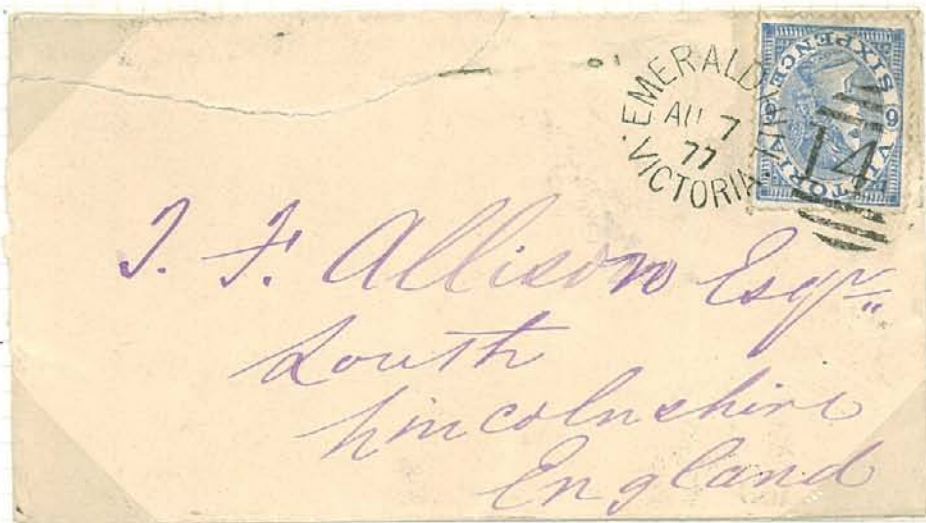 EMERALD HILL
AU 7
77
VICTORIA
14
VICTORIA
SIXPENCE
6
J. F. Allison Esqr
Louth
Lincolnshire
England